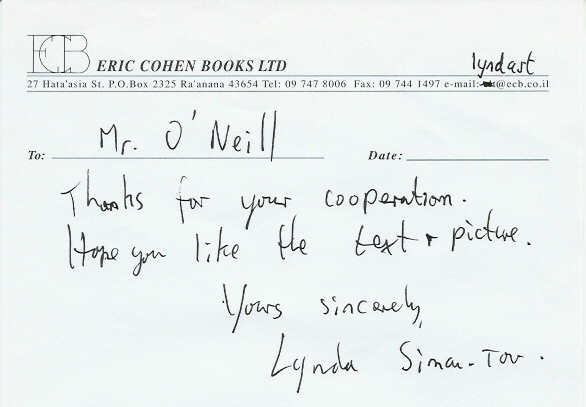 ECB ERIC COHEN BOOKS LTD
lyndast
27 Hata'asia St. P.O.Box 2325 Ra'anana 43654 Tel: 09 747 8006 Fax: 09 744 1497 e-mail: @ecb.co.il
To: Mr. O'Neill Date:
Thanks for your cooperation.
Hope you like the text + picture.
Yours sincerely,
Lynda Siman-Tov.